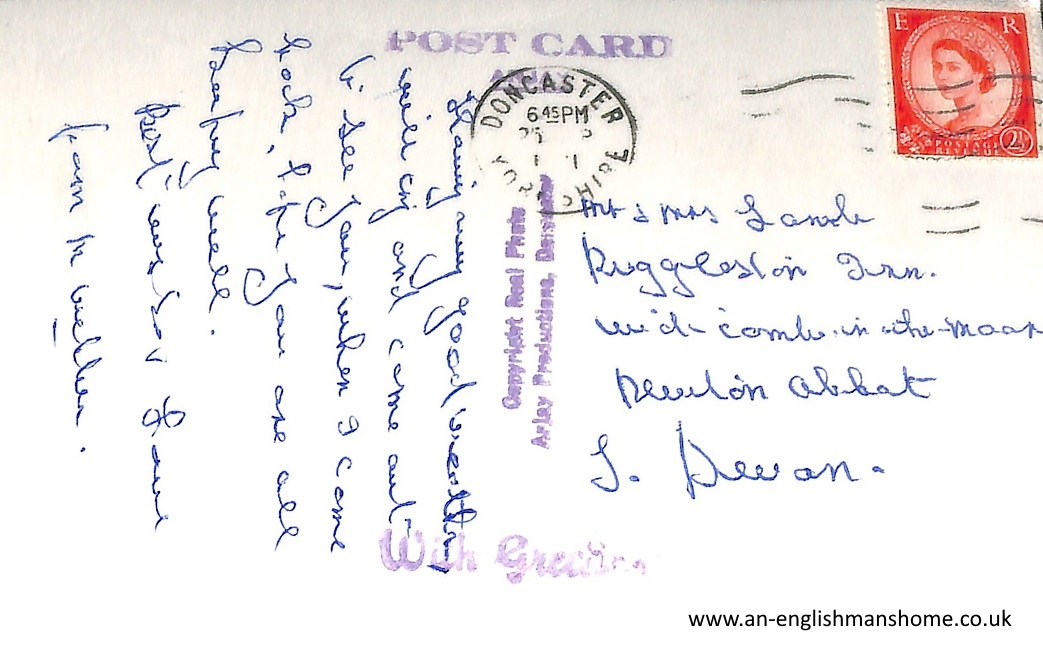 POST CARD
Having very good weather
will try and come out
to see you, when I come
back, hope you are all
keeping well.
Best
from M
With Greetings
Copyright Real Photo
Arjay Productions,
DONCASTER
6 45 PM
YORKSHIRE
E R
POSTAGE
2½
Mr & Mrs Lamb
Rugglestone Inn.
Widecombe-in-the-Moor
Newton Abbot
S. Devon.
www.an-englishmanshome.co.uk